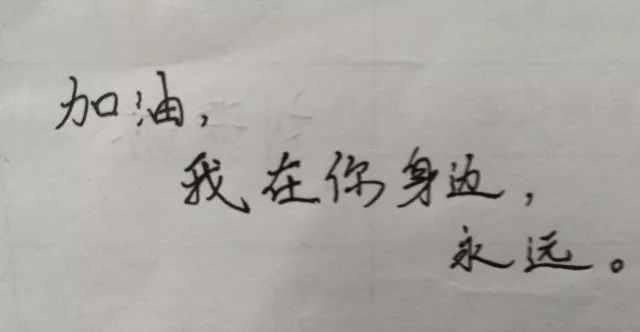 加油，
我在你身边，
永远。